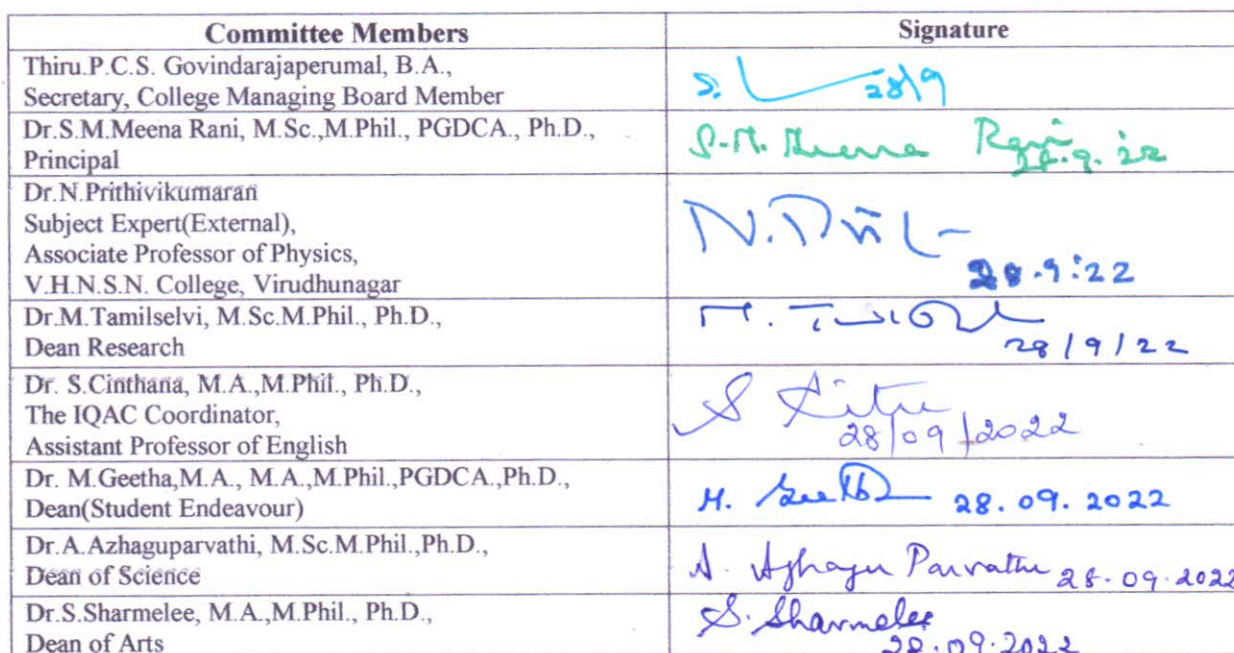 Committee Members
Signature
Thiru.P.C.S. Govindarajaperumal, B.A.,
Secretary, College Managing Board Member
S. 28/9
Dr.S.M.Meena Rani, M.Sc.,M.Phil., PGDCA., Ph.D.,
Principal
S.M. Meena Rani
28.9.22
Dr.N.Prithivikumaran
Subject Expert(External),
Associate Professor of Physics,
V.H.N.S.N. College, Virudhunagar
28.9.22
Dr.M.Tamilselvi, M.Sc.M.Phil., Ph.D.,
Dean Research
28/9/22
Dr. S.Cinthana, M.A.,M.Phil., Ph.D.,
The IQAC Coordinator,
Assistant Professor of English
28/09/2022
Dr. M.Geetha,M.A., M.A.,M.Phil.,PGDCA.,Ph.D.,
Dean(Student Endeavour)
M. Geetha 28.09.2022
Dr.A.Azhaguparvathi, M.Sc.M.Phil.,Ph.D.,
Dean of Science
A. Azhagu Parvathi 28.09.2022
Dr.S.Sharmelee, M.A.,M.Phil., Ph.D.,
Dean of Arts
S. Sharmelee
28.09.2022